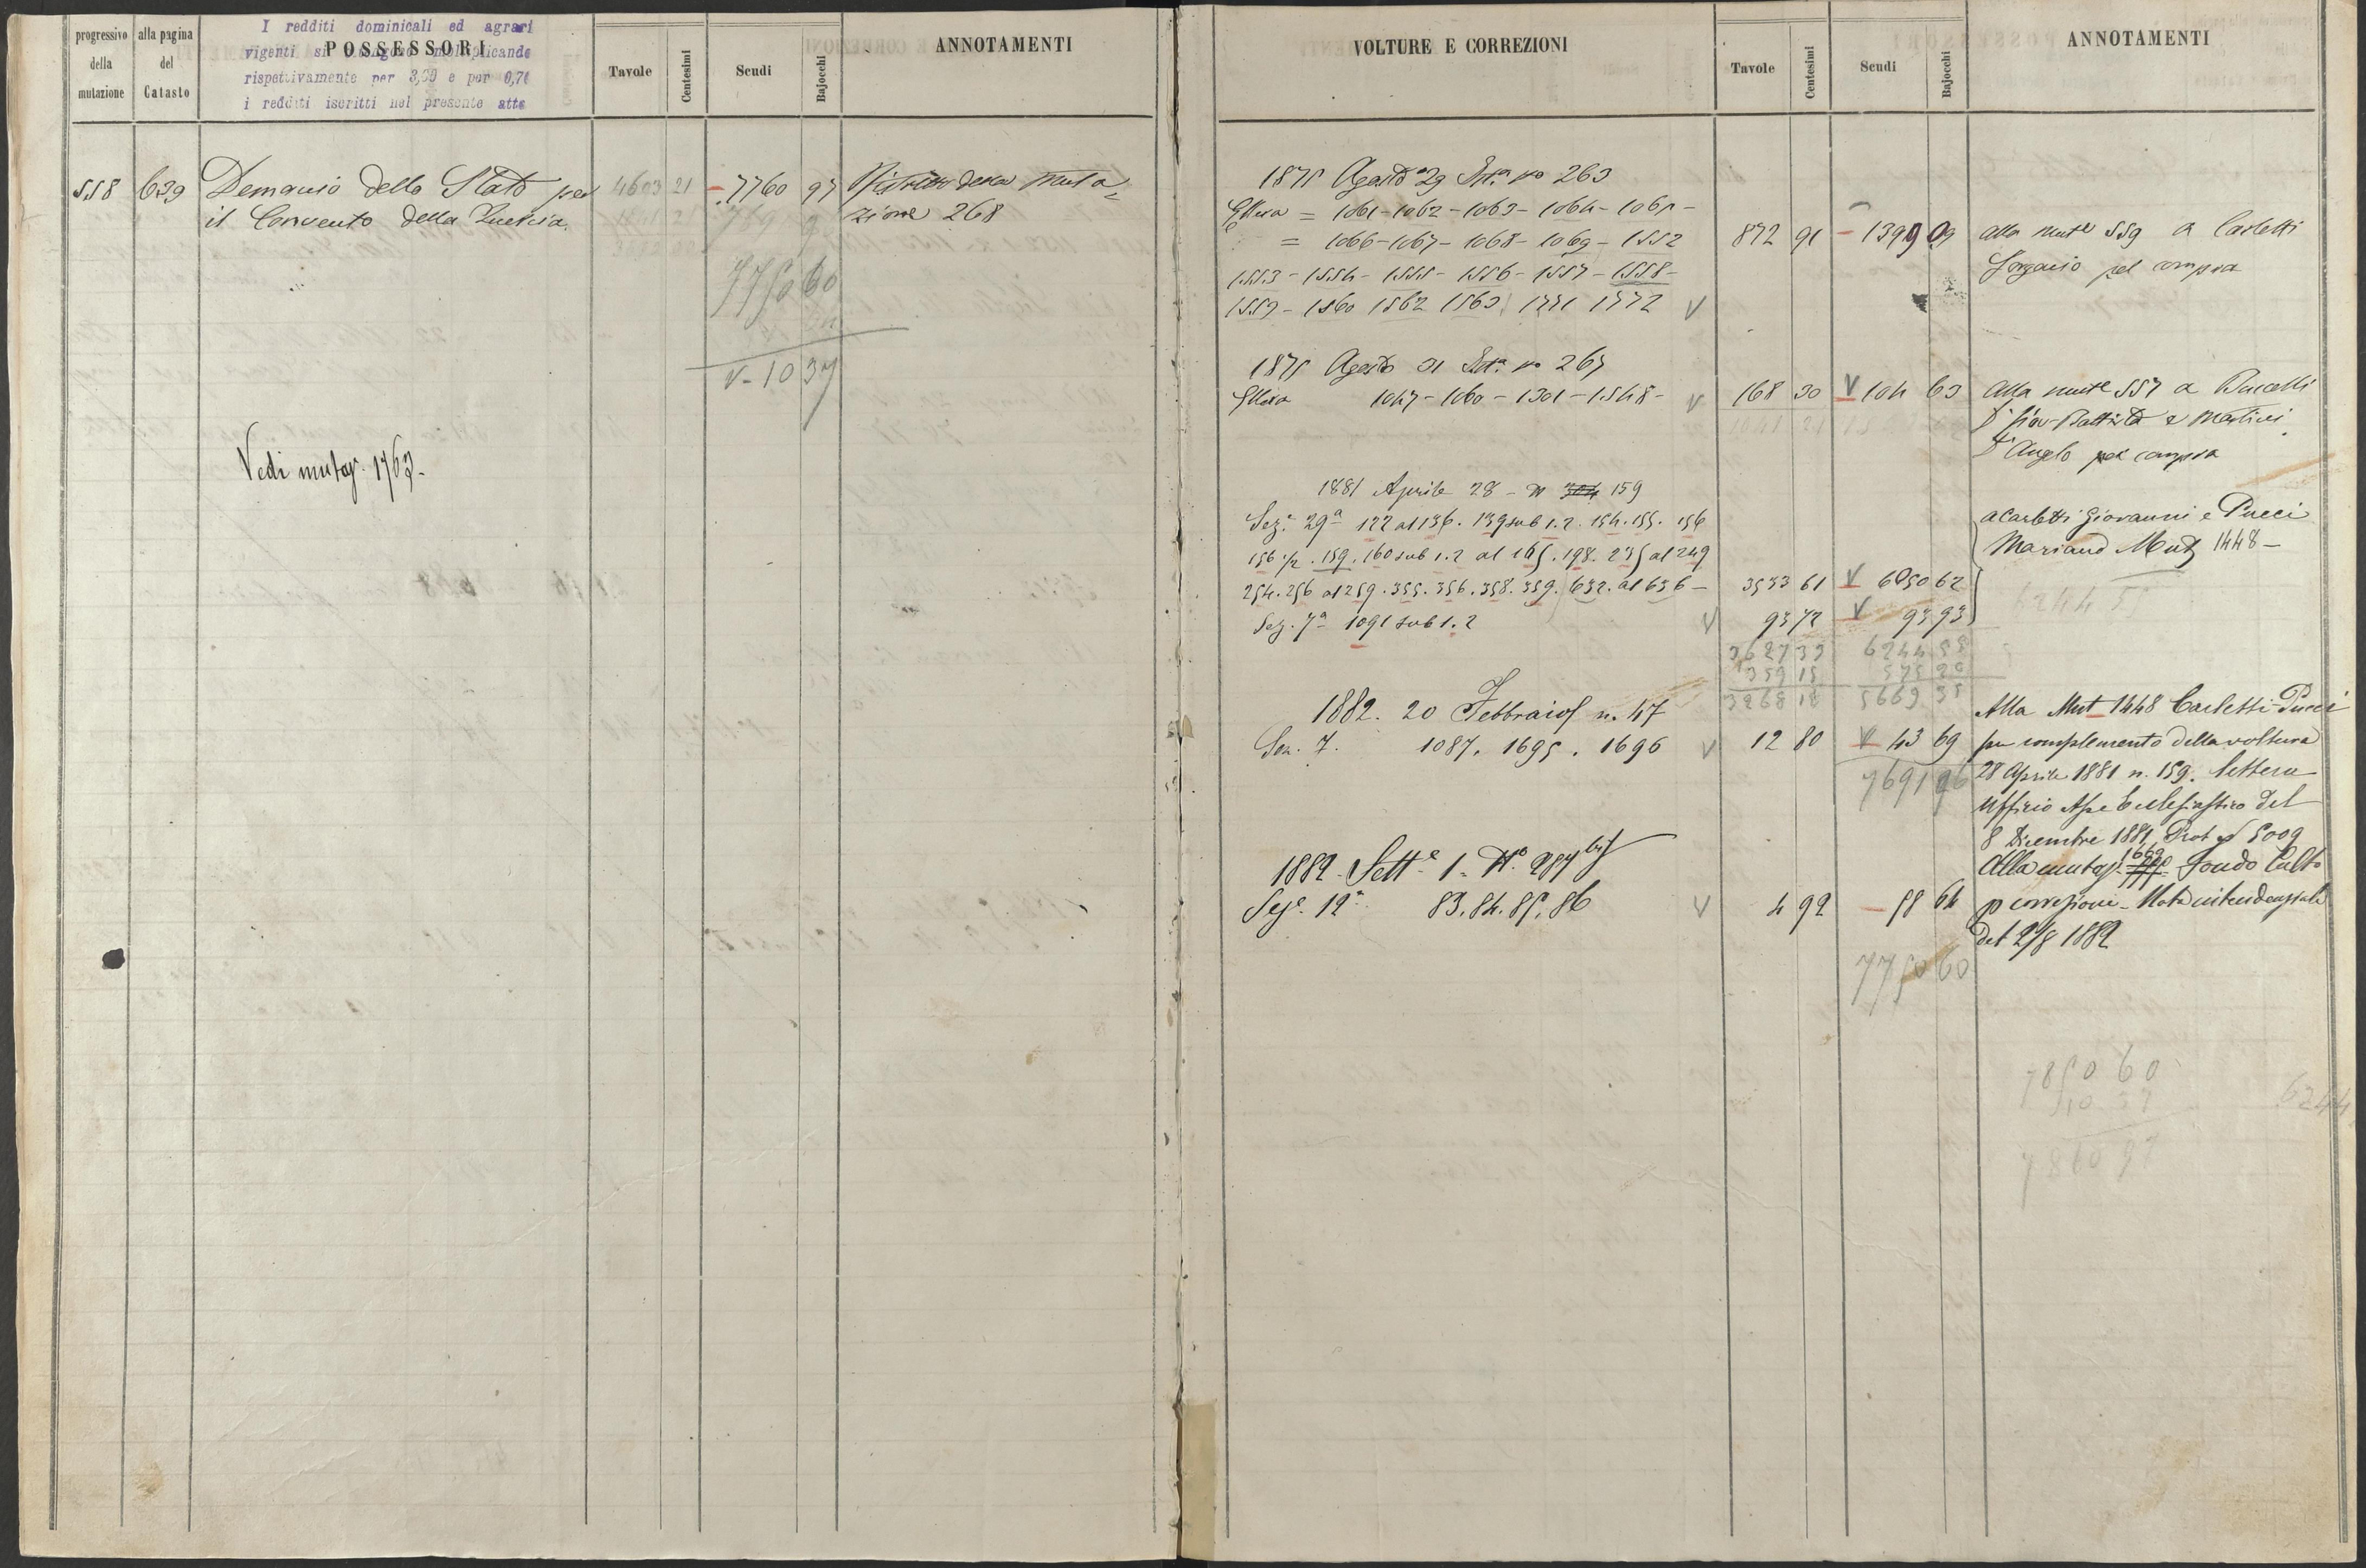 progressivo della mutazione
alla pagina del Catasto
POSSESSORI
I redditi dominicali ed agrari
vigenti si moltiplicando
rispettivamente per 3,00 e per 0,70
i redditi iscritti nel presente atto
Tavole
Centesimi
Scudi
Bajocchi
ANNOTAMENTI
558 639 Demanio dello Stato per 4603 21 - 7760 97 della muta
il Convento della Quercia. zione 268
7750 60
V - 10 37
Vedi mutaz. 1763.
VOLTURE E CORREZIONI
Tavole
Centesimi
Scudi
Bajocchi
ANNOTAMENTI
1875 Agosto 29 no 263
= 1061 - 1062 - 1063 - 1064 - 1065 -
= 1066 - 1067 - 1068 - 1069 - 1552 872 91 - 1399 09 alla mute 559 a Carletti
1553 - 1554 - 1555 - 1556 - 1557 - 1558 - pel compra
1559 - 1560 1562 1563 1772 V
1875 Agosto 31 no 267
1047 - 1060 - 1301 - 1548 - V 168 30 V 104 63 alla mute 557 a
Gio-Battista e Martini
Angelo per compra
1881 Aprile 28 - N 304 159
Sez.e 29a 122 al 136. 139 sub 1.2. 154. 155. 156 a Carletti Giovanni e Pucci
156 1/2. 159. 160 sub 1.2 al 165. 198. 235 al 249 Mariano Mutz 1448 -
254. 256 al 259. 355. 356. 358. 359. 632. al 636 - 3533 61 V 6050 62
Sez. 7a 1091 sub 1.2 V 93 72 V 93 93
3627 33 6244 55
359 15 575 20
3268 18 5669 35
1882. 20 Febbraio n. 47 Alla Mut 1448 Carletti-Pucci
Sez. 7. 1087. 1695. 1696 V 12 80 V 43 69 per complemento della voltura
7691 96 28 Aprile 1881 n. 159. lettera
Ufficio Asse Ecclesiastico del
8 Dicembre 1881 Prot 5009
1882 - Sett.e 1. No. 287 bis Alla mutaz. 1669 Fondo Culto
Sez.e 12a 83. 84. 85. 86 V 4 92 - 58 64 p correzione - Nota intendenziale
del 2/8 1882
7750 60
7850 60
10 37
7860 97
6244